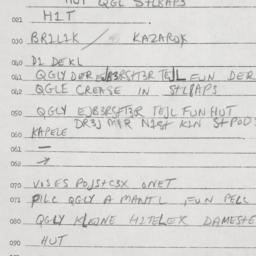 HUT QGL S+LRAPS
021 H1T
030 BR1L1K / KAZAROK
040 D1 DEKL
041 QGLY DER EJB3RSHT3R TEJL FUN DER
042 QGLE CREASE IN S+LRAPS
050 QGLY EJB3RSHT3R TEJL FUN HUT
DR3J M1R N1SHT K1N S+POD1
060 KAPELE
061 —
070 V1SES POJS+C3X ONET
071 P1LC QGLY A MANTL, FUN PELC
080 QGLY KLEJNE H1TELER DAMESHE
090 HUT